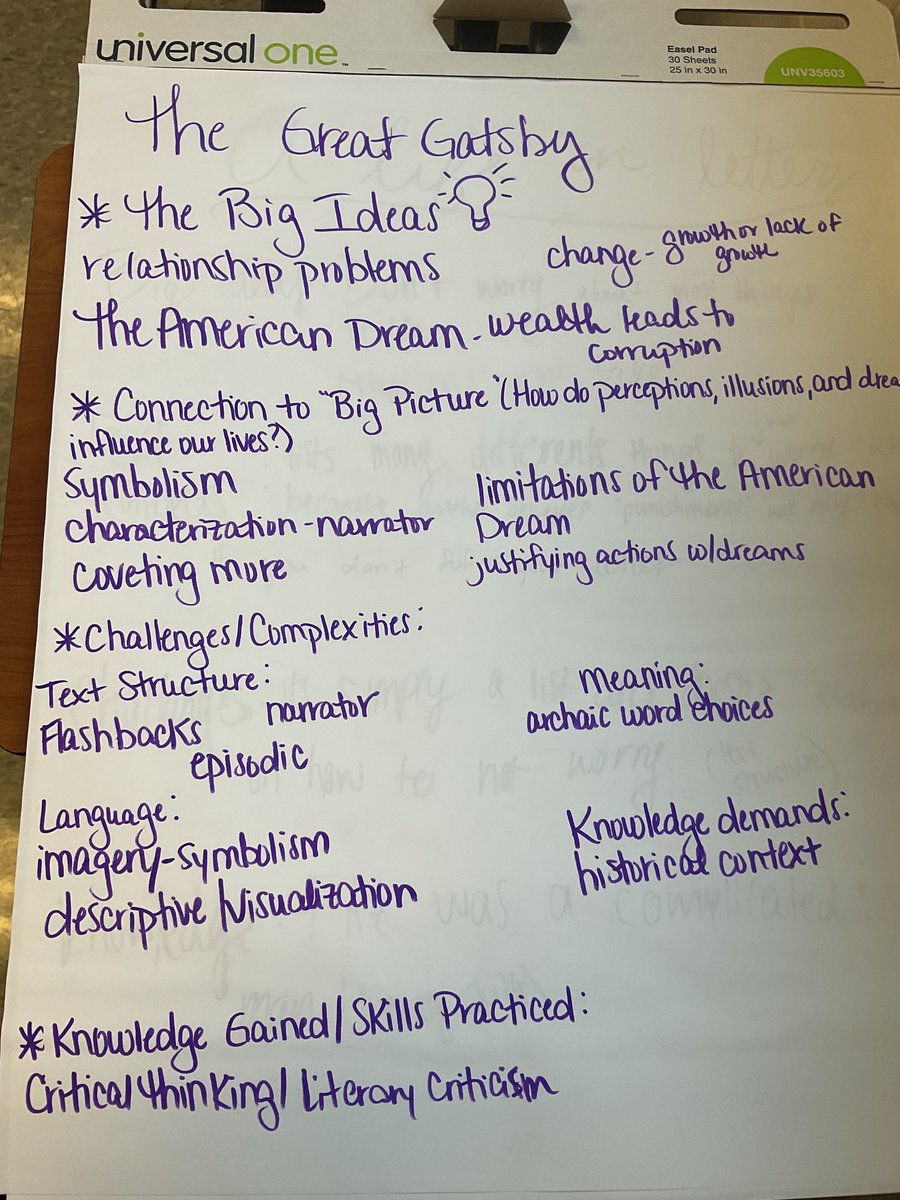 universal one™
Easel Pad
30 Sheets
25 in x 30 in
UNV35603
The Great Gatsby
* The Big Ideas
relationship problems
change - growth or lack of
growth
The American Dream - wealth leads to
corruption
* Connection to "Big Picture" (How do perceptions, illusions, and drea
influence our lives?)
Symbolism
characterization - narrator
coveting more
limitations of the American
Dream
justifying actions w/dreams
* Challenges/Complexities:
Text Structure:
Flashbacks
narrator
episodic
meaning:
archaic word choices
Language:
imagery - symbolism
descriptive/visualization
Knowledge demands:
historical context
* Knowledge Gained/Skills Practiced:
Critical thinking/Literary Criticism